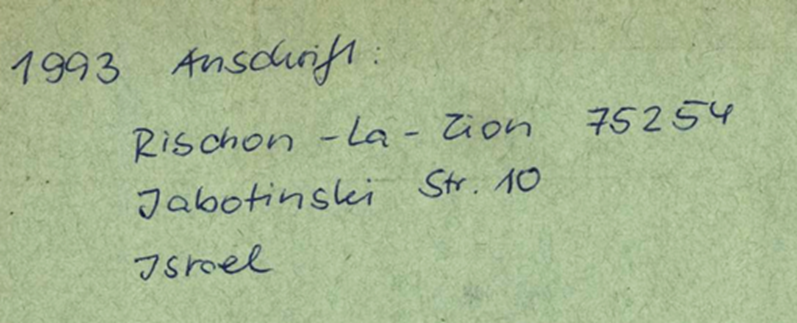 1993 Anschrift:
Rischon - La - Zion 75254
Jabotinski Str. 10
Israel